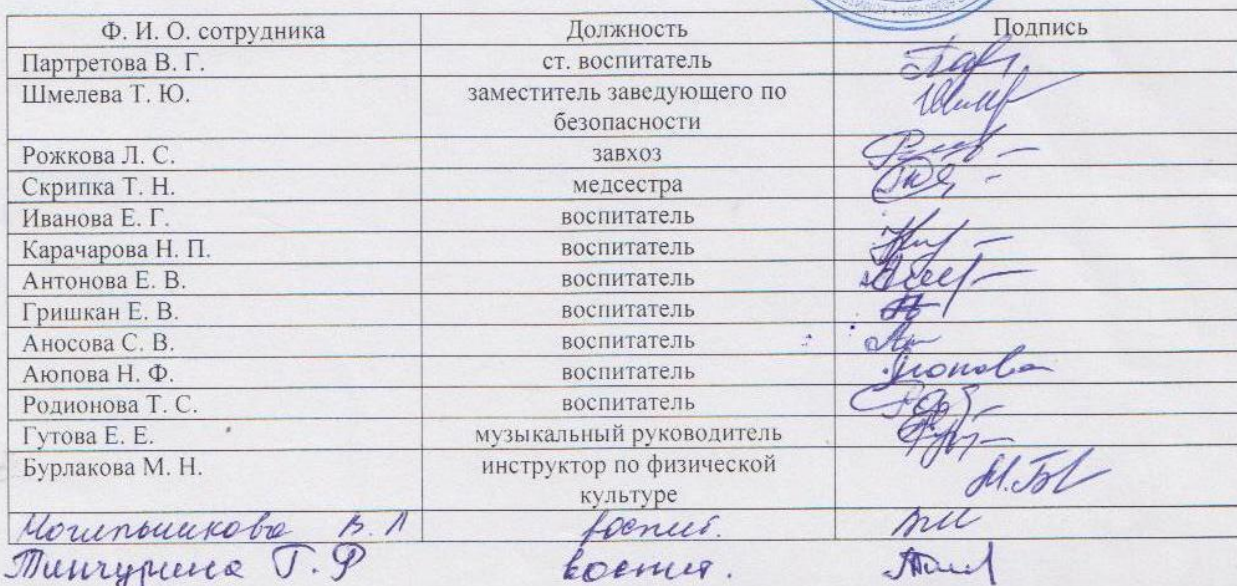 Ф. И. О. сотрудника Должность Подпись
Партретова В. Г. ст. воспитатель
Шмелева Т. Ю. заместитель заведующего по
безопасности
Рожкова Л. С. завхоз
Скрипка Т. Н. медсестра
Иванова Е. Г. воспитатель
Карачарова Н. П. воспитатель
Антонова Е. В. воспитатель
Гришкан Е. В. воспитатель
Аносова С. В. воспитатель
Аюпова Н. Ф. воспитатель Аюпова
Родионова Т. С. воспитатель
Гутова Е. Е. музыкальный руководитель
Бурлакова М. Н. инструктор по физической
культуре
В. Л воспит.
Тинчурина Г. Ф воспит.